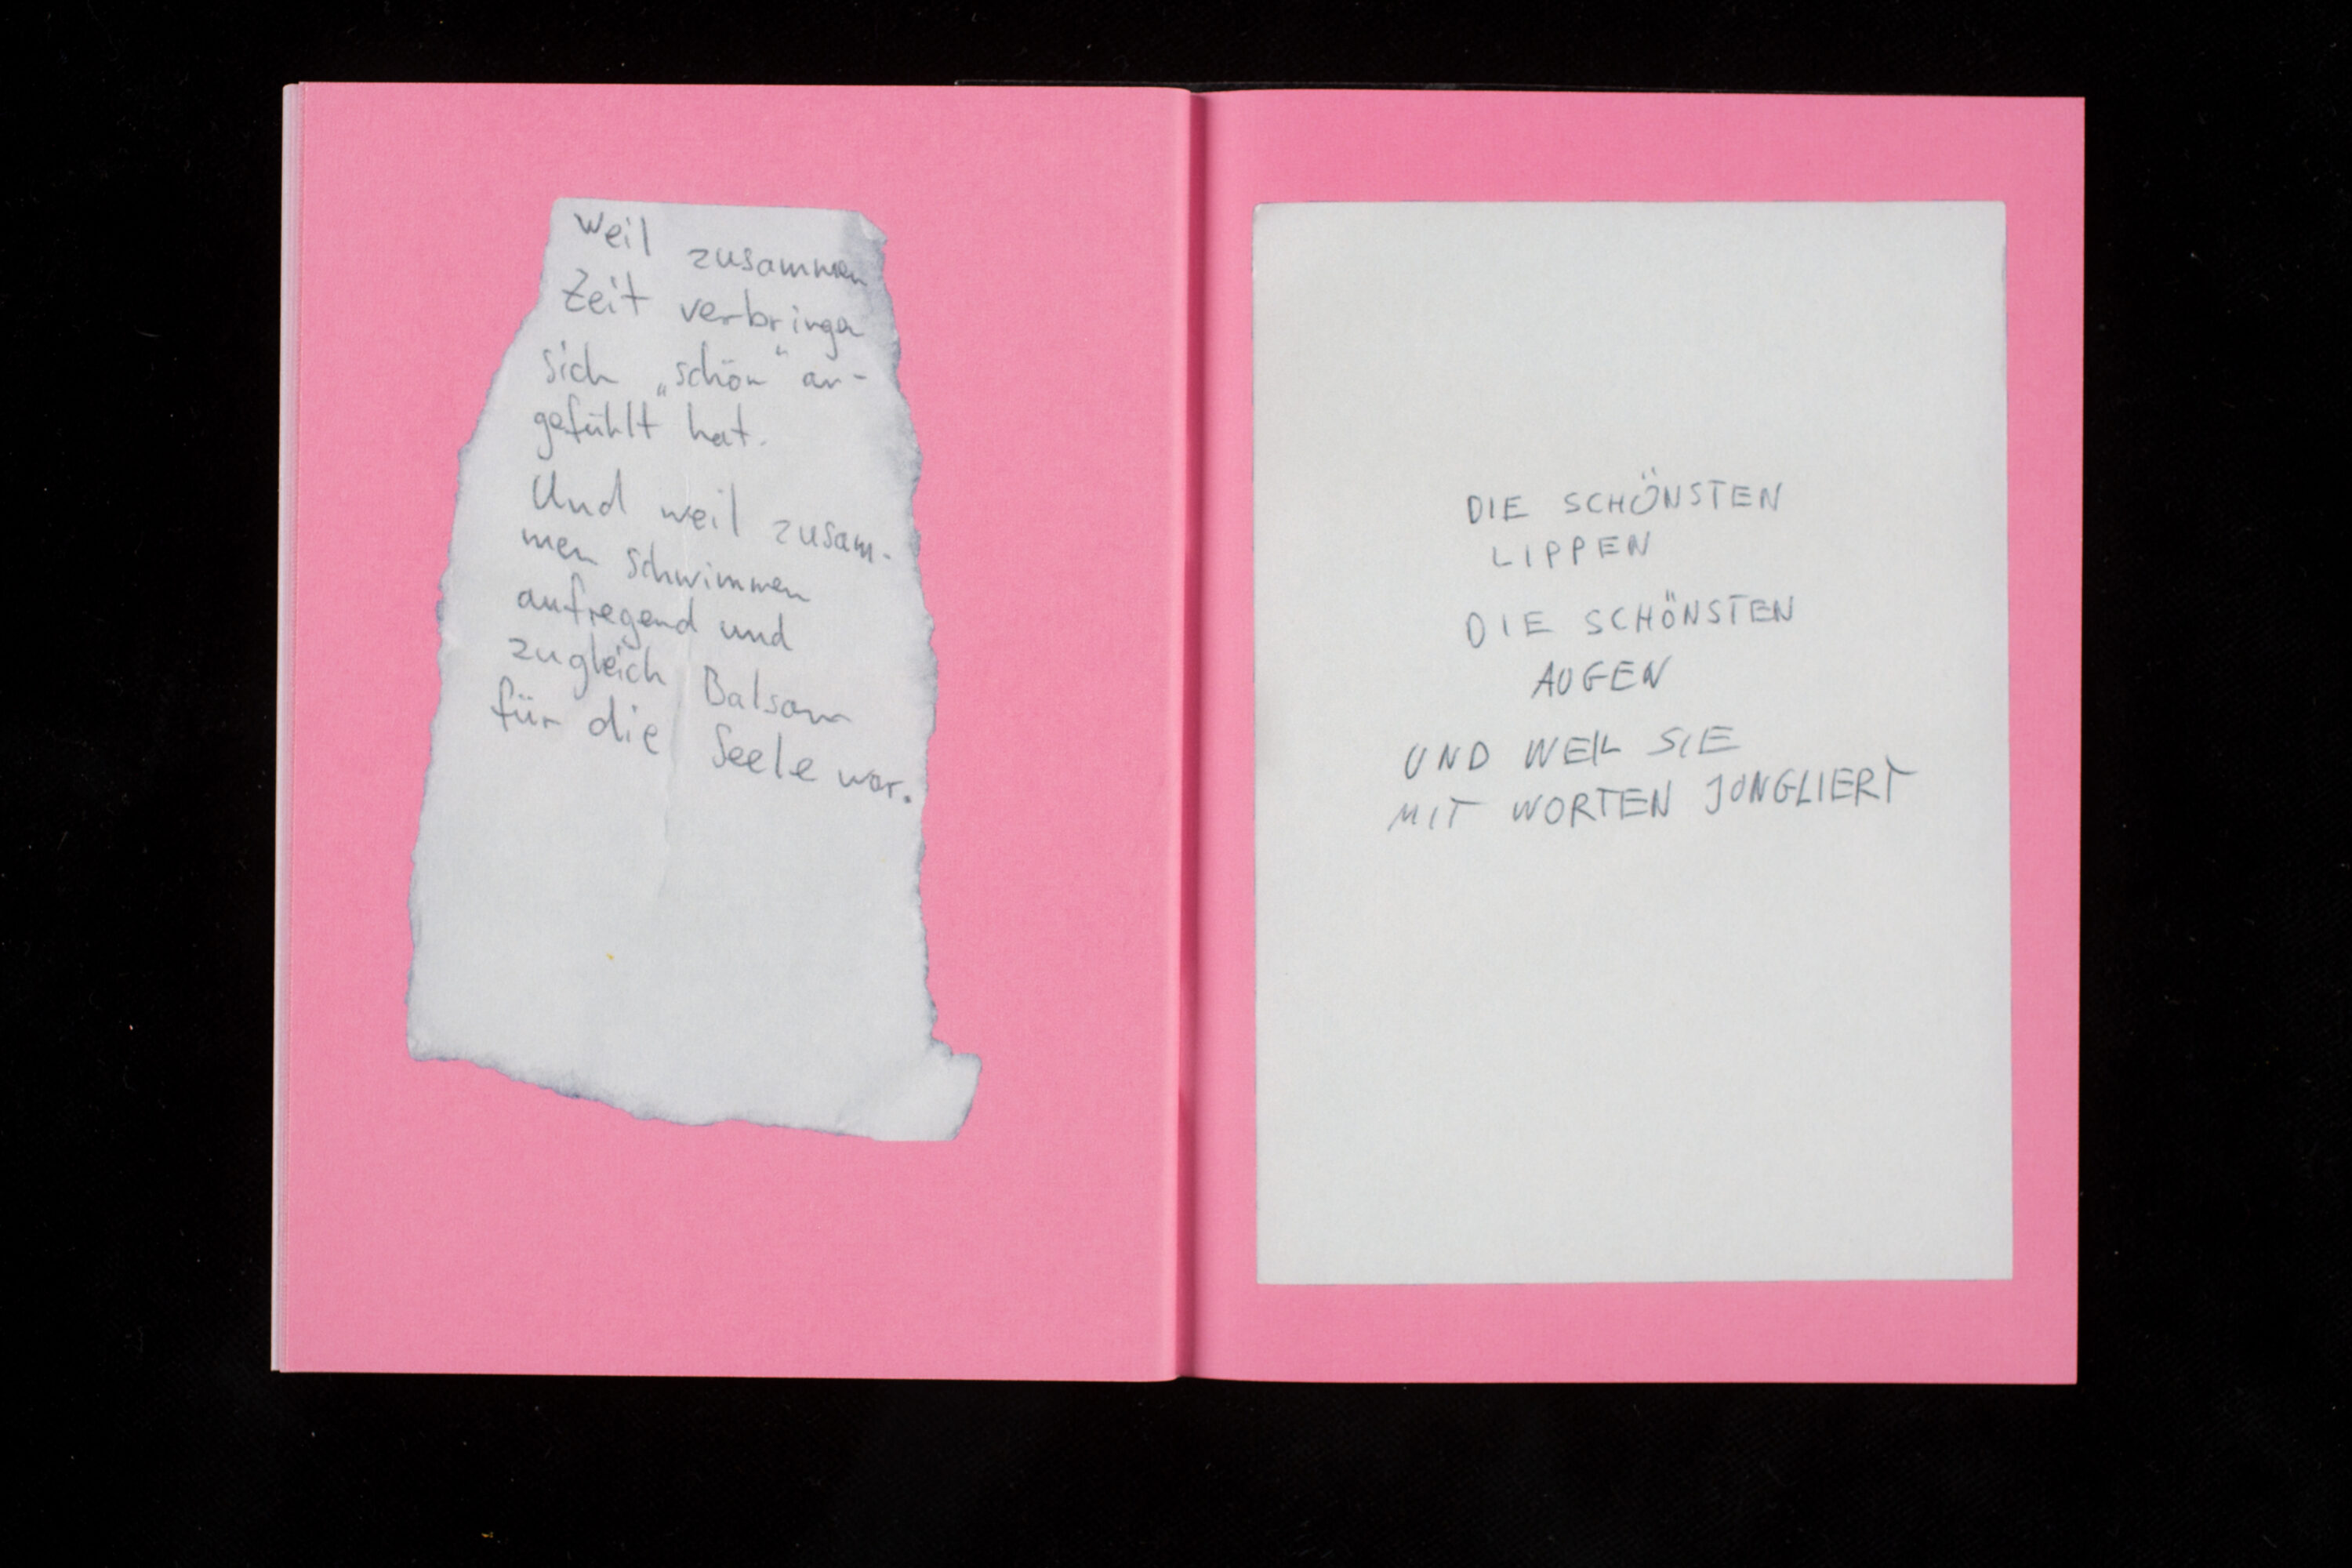 Weil zusammen
Zeit verbringen
sich „schön“ an-
gefühlt hat.
Und weil zusam-
men schwimmen
aufregend und
zugleich Balsam
für die Seele war.
DIE SCHÖNSTEN
LIPPEN
DIE SCHÖNSTEN
AUGEN
UND WEIL SIE
MIT WORTEN JONGLIERT